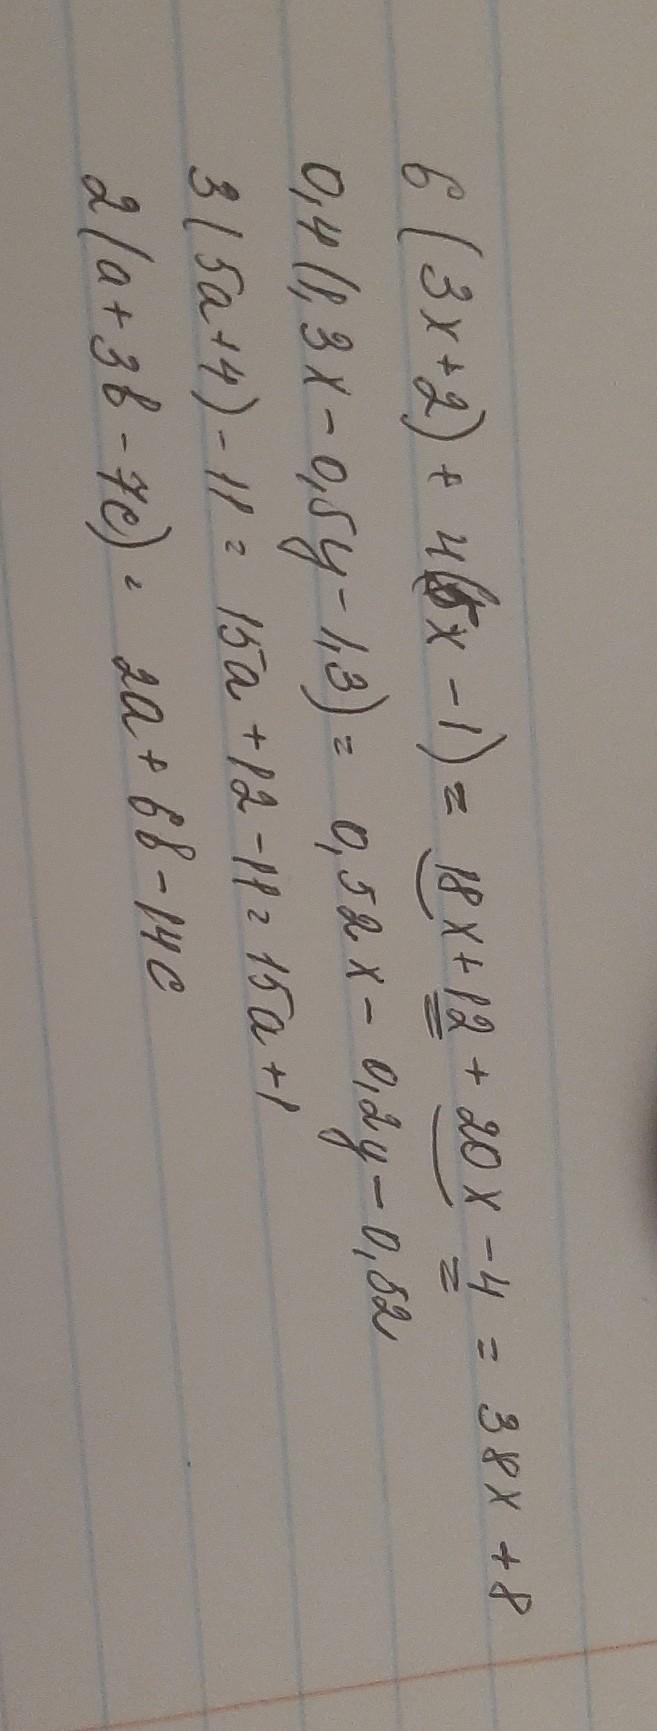 6(3x+2)+4(5x-1)=18x+12+20x-4=38x+8
0,4(1,3x-0,5y-1,3)=0,52x-0,2y-0,52
3(5a+4)-11=15a+12-11=15a+1
2(a+3b-7c)=2a+6b-14c